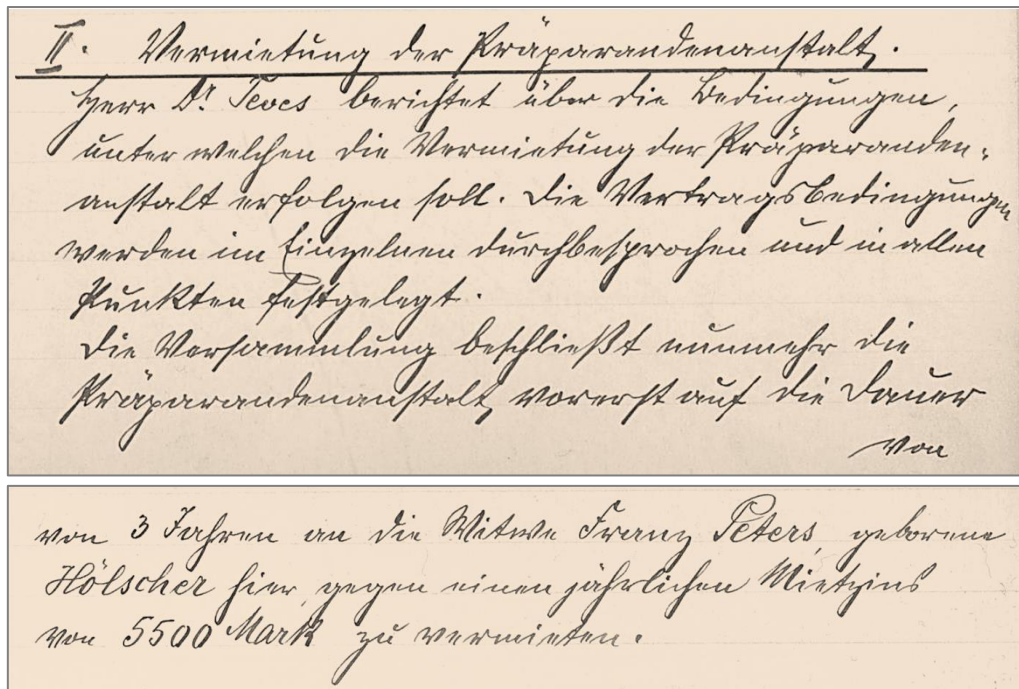 II. Vermietung der Präparandenanstalt.
Herr Dr. Teves berichtet über die Bedingungen,
unter welchen die Vermietung der Präparanden-
anstalt erfolgen soll. Die Vertragsbedingungen
werden im Einzelnen durchbesprochen und in allen
Punkten festgelegt.
Die Versammlung beschließt nunmehr die
Präparandenanstalt, vorerst auf die Dauer
von
von 3 Jahren an die Witwe Franz Peters, geborene
Hölscher hier, gegen einen jährlichen Mietzins
von 5500 Mark zu vermieten.